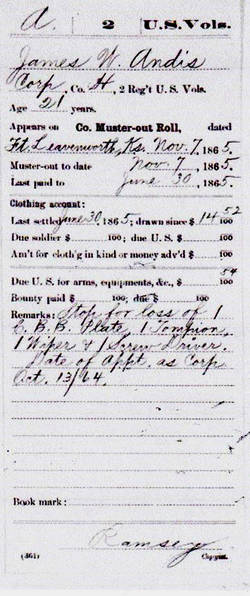 A. 2 U.S. Vols.
James W. Andis
Corp, Co. H, 2 Reg't U. S. Vols.
Age 21 years.
Appears on Co. Muster-out Roll, dated
Ft. Leavenworth, Ks. Nov. 7, 1865.
Muster-out to date Nov 7, 1865.
Last paid to June 30, 1865.
Clothing account:
Last settled June 30, 1865; drawn since $ 14 52/100
Due soldier $ 100; due U. S. $ 100
Am't for cloth'g in kind or money adv'd $ 100
Due U. S. for arms, equipments, &c., $ 54/100
Bounty paid $ 100; due $ 100
Remarks: Stop for loss of 1
C. B. B. Plate, 1 Tompion
1 Wiper & 1 Screw Driver.
Date of Appt. as Corp
Oct. 13/64.
Book mark:
Ramsey
(361) Copyist.